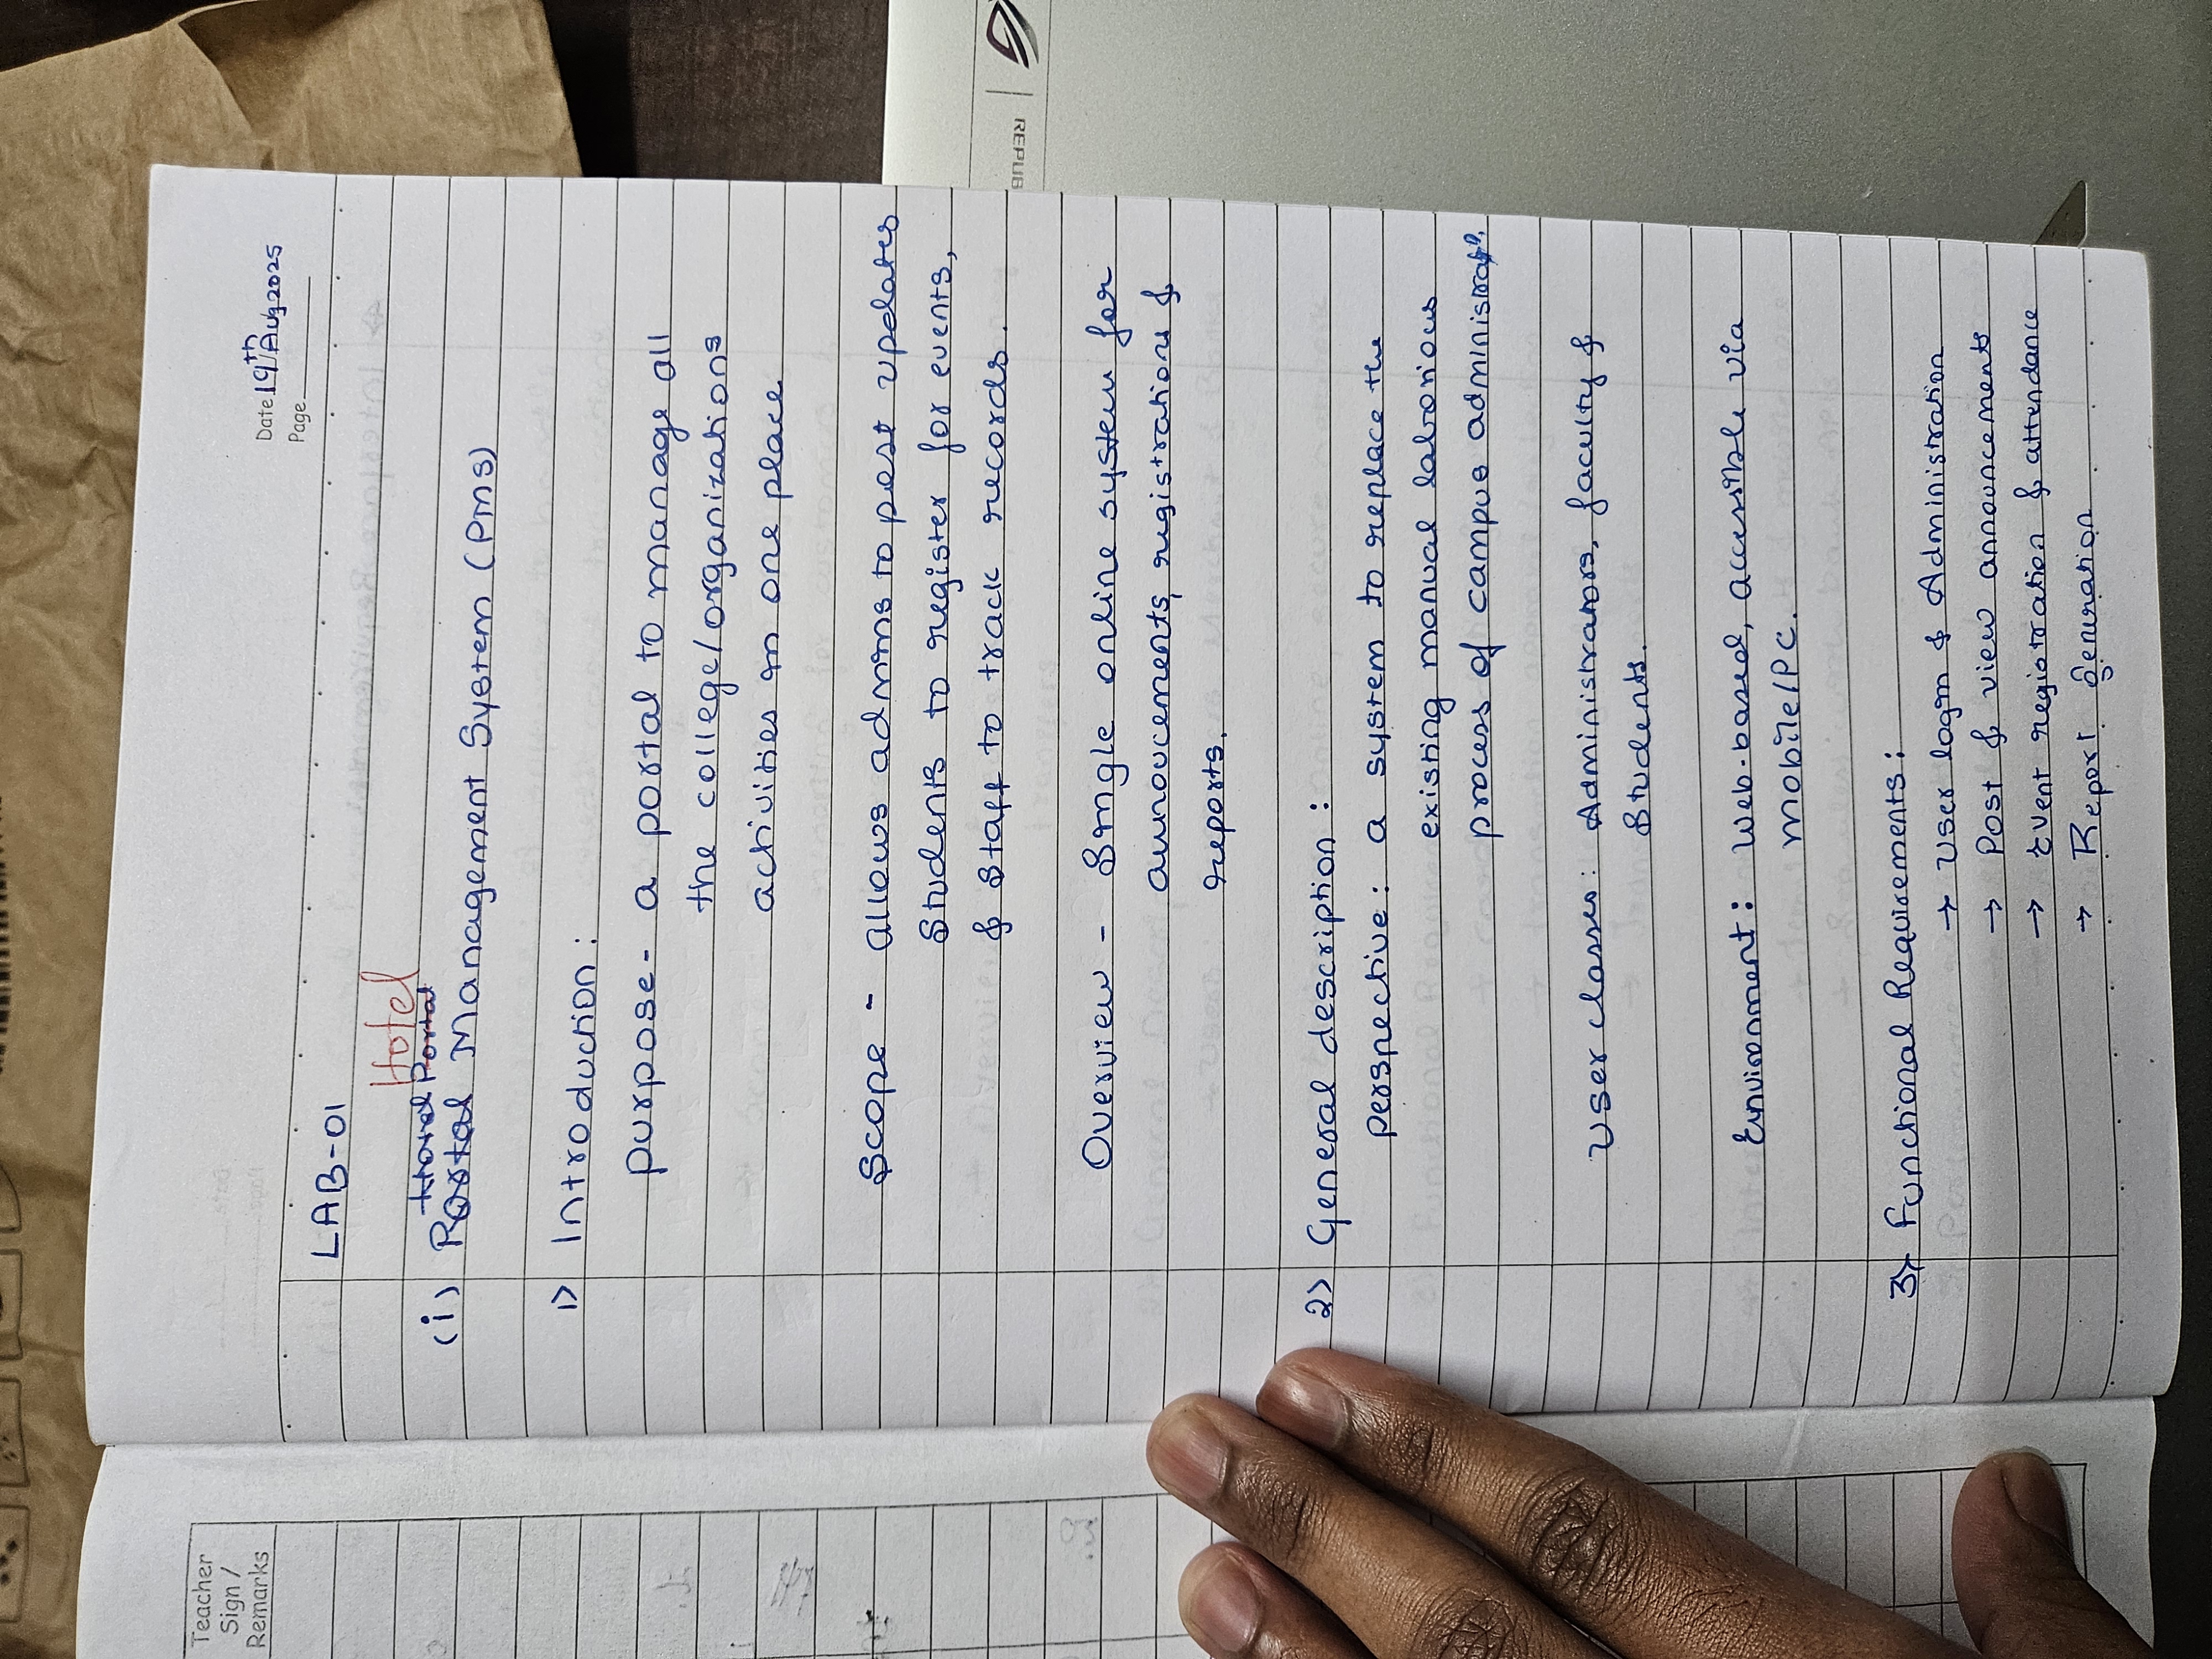 Teacher
Sign /
Remarks
Date 19th Aug 2025
Page
LAB-01
Hotel
Hotel Portal
(i) Portal Management System (PMS)
1> Introduction:
purpose- a portal to manage all
the college/organizations
activities in one place
Scope - allows admins to post updates
Students to register for events,
& Staff to track records.
Overview - Single online system for
annoucements, registrations &
reports.
2> General description:
Perspective: a system to replace the
existing manual laborious
process of campus administratn.
User classes: Administrators, faculty &
Students.
Environment: Web-based, accessible via
mobile/PC.
3> Functional Requirements:
→ User login & Administration
→ Post & view announcements
→ Event registration & attendance
→ Report generation
REPUB